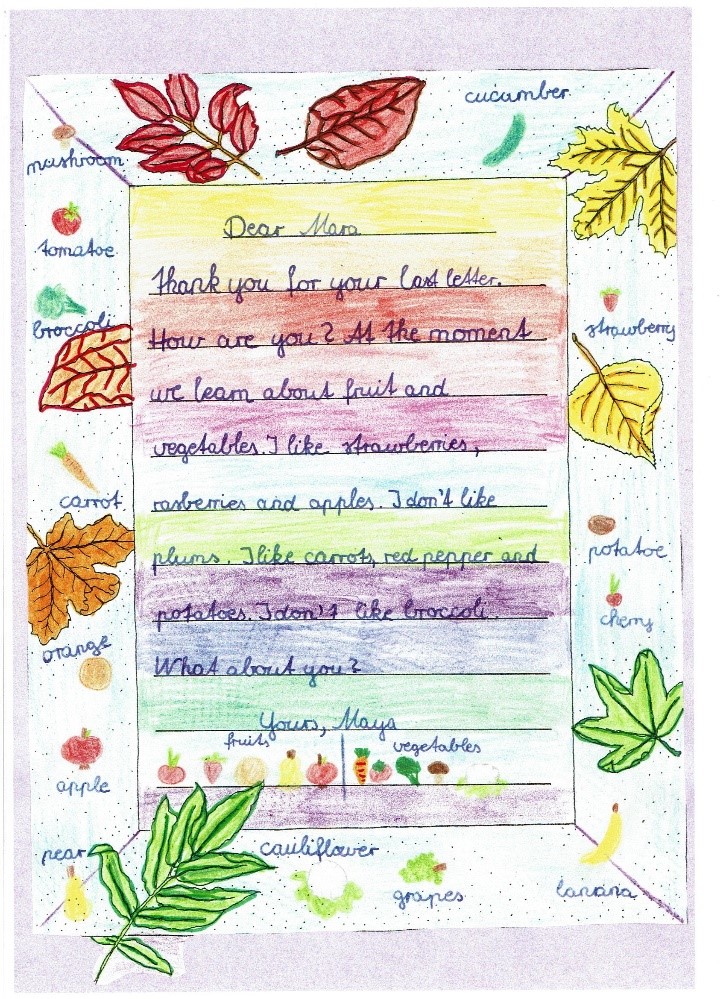 cucumber
mushroom
tomatoe
broccoli
carrot
orange
apple
pear
Dear Mara
Thank you for your last letter.
How are you? At the moment
we learn about fruit and
vegetables. I like strawberries,
rasberries and apples. I don't like
plums. I like carrots, red pepper and
potatoes. I don't like broccoli.
What about you?
Yours, Maya
fruits vegetables
strawberry
potatoe
cherry
cauliflower
grapes
banana